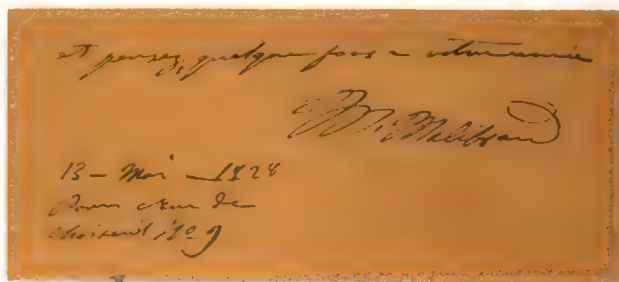 et pensez quelque fois a votre amie
M. Malibran
13 - Mai - 1828
de
choiseul No 9